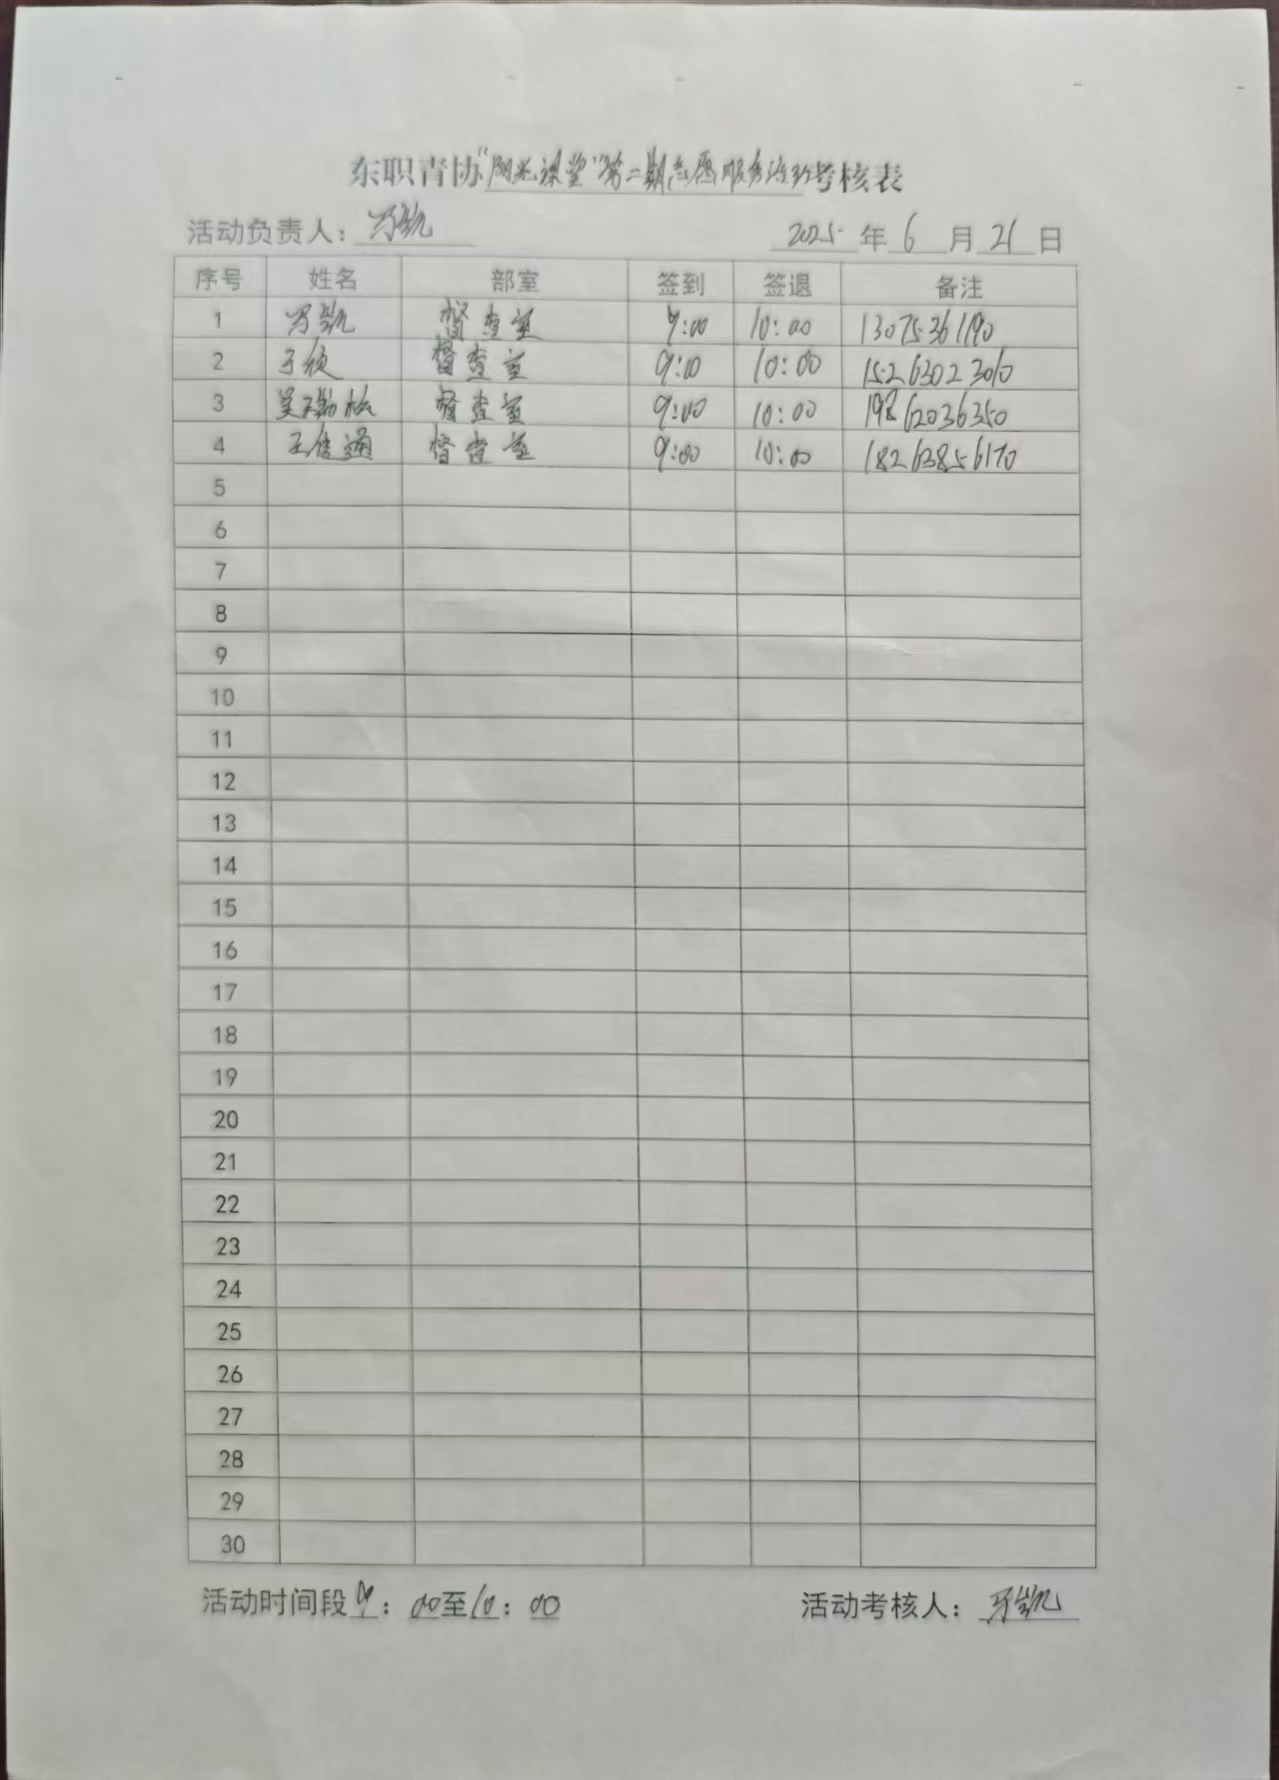 东职青协“阳光课堂”第二期志愿服务活动考核表
活动负责人：万凯 2025 年 6 月 21 日
序号 姓名 部室 签到 签退 备注
1 万凯 督查室 9:00 10:00 13075361190
2 督查室 9:00 10:00 15263023010
3 督查室 9:00 10:00 19862036350
4 督查室 9:00 10:00 18263856170
5
6
7
8
9
10
11
12
13
14
15
16
17
18
19
20
21
22
23
24
25
26
27
28
29
30
活动时间段 9：00至10：00 活动考核人：万凯